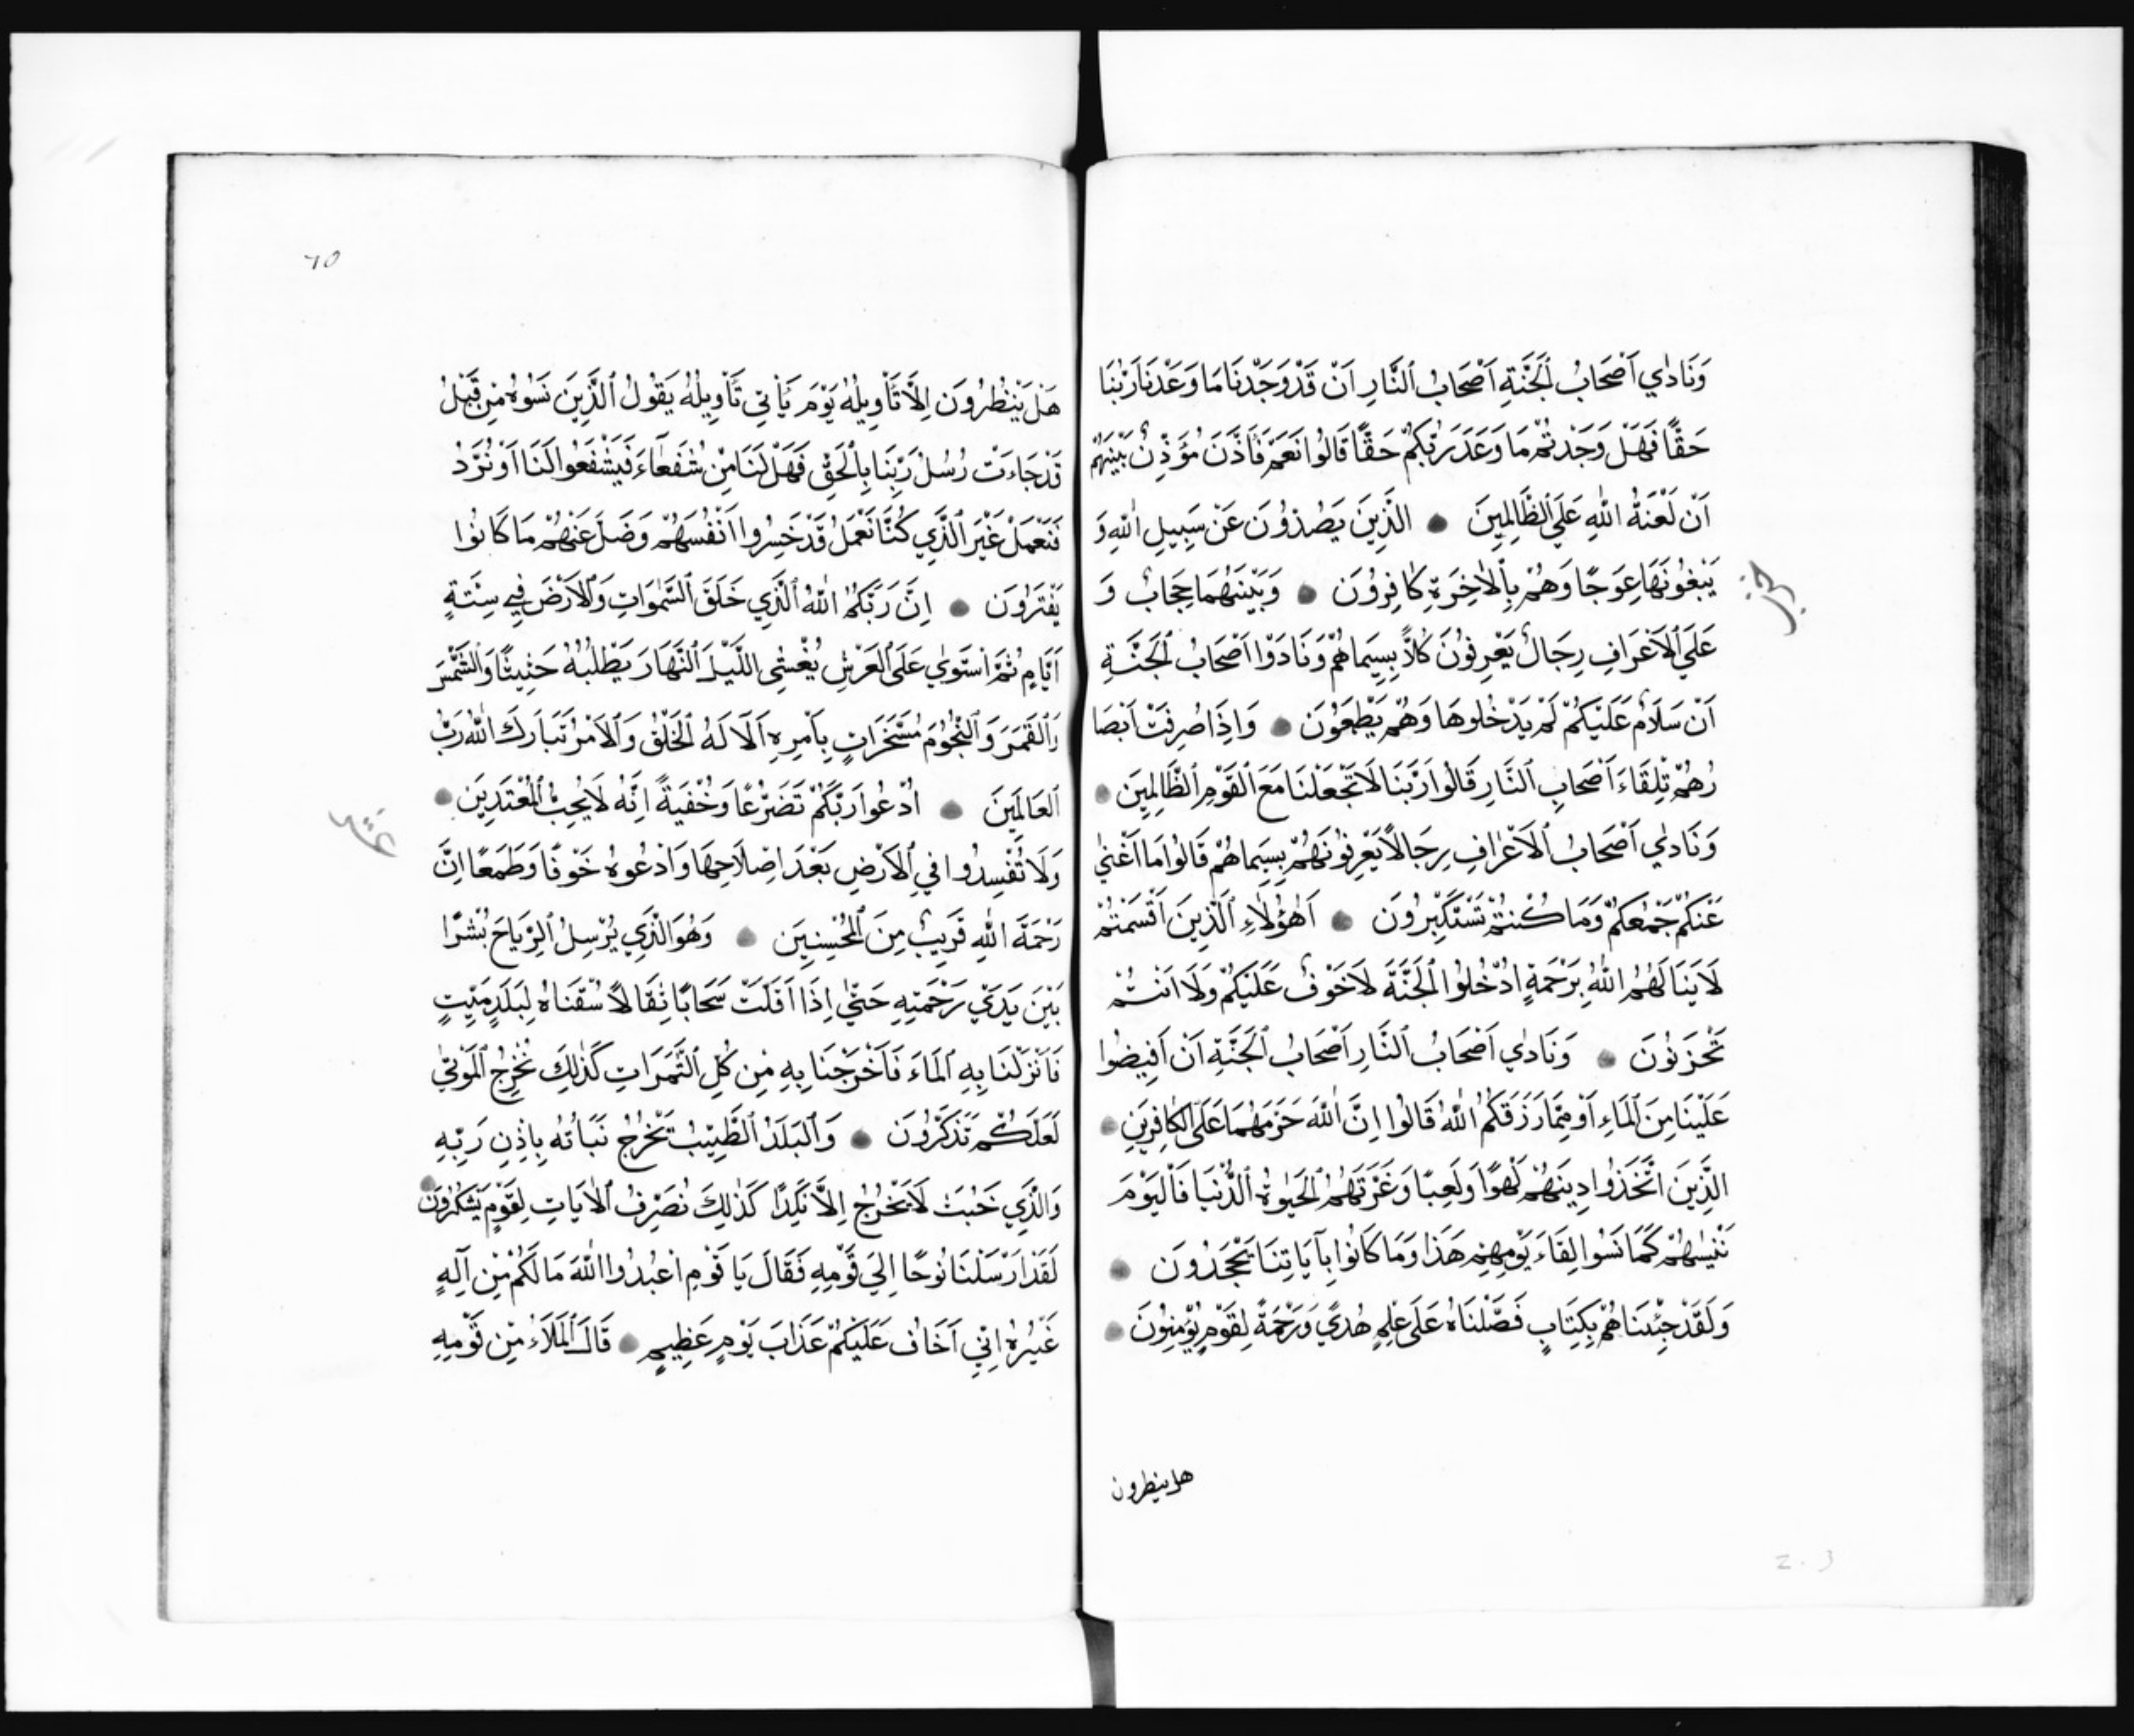 وَنَادٰي اَصْحَابُ الْجَنَّةِ اَصْحَابُ النَّارِ اَنْ قَدْ وَجَدْنَا مَا وَعَدْنَا رَبُّنَا
حَقًّا فَهَلْ وَجَدْتُمْ مَا وَعَدَ رَبُّكُمْ حَقًّا قَالُوا نَعَمْ فَاَذَّنَ مُؤَذِّنٌ بَيْنَهُمْ
اَنْ لَعْنَةُ اللّٰهِ عَلَي الظَّالِمِينَ ● الَّذِينَ يَصُدُّونَ عَنْ سَبِيلِ اللّٰهِ وَ
يَبْغُونَهَا عِوَجًا وَهُمْ بِالْاٰخِرَةِ كَافِرُونَ ● وَبَيْنَهُمَا حِجَابٌ وَ
حزب
عَلَي الْاَعْرَافِ رِجَالٌ يَعْرِفُونَ كُلاًّ بِسِيمَاهُمْ وَنَادَوْا اَصْحَابُ الْجَنَّةِ
اَنْ سَلَامٌ عَلَيْكُمْ لَمْ يَدْخُلُوهَا وَهُمْ يَطْمَعُونَ ● وَاِذَا صُرِفَتْ اَبْصَا
رُهُمْ تِلْقَاءَ اَصْحَابِ النَّارِ قَالُوا رَبَّنَا لَا تَجْعَلْنَا مَعَ الْقَوْمِ الظَّالِمِينَ ●
وَنَادٰي اَصْحَابُ الْاَعْرَافِ رِجَالاً يَعْرِفُونَهُمْ بِسِيمَاهُمْ قَالُوا مَا اَغْنٰي
عَنْكُمْ جَمْعُكُمْ وَمَا كُنْتُمْ تَسْتَكْبِرُونَ ● اَهٰؤُلَاءِ الَّذِينَ اَقْسَمْتُمْ
لَا يَنَالُهُمُ اللّٰهُ بِرَحْمَةٍ اُدْخُلُوا الْجَنَّةَ لَا خَوْفٌ عَلَيْكُمْ وَلَا اَنْتُمْ
تَحْزَنُونَ ● وَنَادٰي اَصْحَابُ النَّارِ اَصْحَابُ الْجَنَّةِ اَنْ اَفِيضُوا
عَلَيْنَا مِنَ الْمَاءِ اَوْ مِمَّا رَزَقَكُمُ اللّٰهُ قَالُوا اِنَّ اللّٰهَ حَرَّمَهُمَا عَلَي الْكَافِرِينَ ●
الَّذِينَ اتَّخَذُوا دِينَهُمْ لَهْوًا وَلَعِبًا وَغَرَّتْهُمُ الْحَيٰوةُ الدُّنْيَا فَالْيَوْمَ
نَنْسٰيهُمْ كَمَا نَسُوا لِقَاءَ يَوْمِهِمْ هَذَا وَمَا كَانُوا بِآيَاتِنَا يَجْحَدُونَ ●
وَلَقَدْ جِئْنَاهُمْ بِكِتَابٍ فَصَّلْنَاهُ عَلَي عِلْمٍ هُدًي وَرَحْمَةً لِقَوْمٍ يُؤْمِنُونَ ●
هل ينظرون
٦٥
هَلْ يَنْظُرُونَ اِلَّا تَاْوِيلَهُ يَوْمَ يَاْتِي تَاْوِيلُهُ يَقُولُ الَّذِينَ نَسُوهُ مِنْ قَبْلُ
قَدْ جَاءَتْ رُسُلُ رَبِّنَا بِالْحَقِّ فَهَلْ لَنَا مِنْ شُفَعَاءَ فَيَشْفَعُوا لَنَا اَوْ نُرَدُّ
فَنَعْمَلَ غَيْرَ الَّذِي كُنَّا نَعْمَلُ قَدْ خَسِرُوا اَنْفُسَهُمْ وَضَلَّ عَنْهُمْ مَا كَانُوا
يَفْتَرُونَ ● اِنَّ رَبَّكُمُ اللّٰهُ الَّذِي خَلَقَ السَّمٰوَاتِ وَالْاَرْضَ فِي سِتَّةِ
اَيَّامٍ ثُمَّ اسْتَوٰي عَلَي الْعَرْشِ يُغْشِي اللَّيْلَ النَّهَارَ يَطْلُبُهُ حَثِيثًا وَالشَّمْسَ
وَالْقَمَرَ وَالنُّجُومَ مُسَخَّرَاتٍ بِاَمْرِهِ اَلَا لَهُ الْخَلْقُ وَالْاَمْرُ تَبَارَكَ اللّٰهُ رَبُّ
الْعَالَمِينَ ● اُدْعُوا رَبَّكُمْ تَضَرُّعًا وَخُفْيَةً اِنَّهُ لَا يُحِبُّ الْمُعْتَدِينَ ●
عشر
وَلَا تُفْسِدُوا فِي الْاَرْضِ بَعْدَ اِصْلَاحِهَا وَادْعُوهُ خَوْفًا وَطَمَعًا اِنَّ
رَحْمَةَ اللّٰهِ قَرِيبٌ مِنَ الْمُحْسِنِينَ ● وَهُوَ الَّذِي يُرْسِلُ الرِّيَاحَ بُشْرًا
بَيْنَ يَدَيْ رَحْمَتِهِ حَتّٰي اِذَا اَقَلَّتْ سَحَابًا ثِقَالاً سُقْنَاهُ لِبَلَدٍ مَيِّتٍ
فَاَنْزَلْنَا بِهِ الْمَاءَ فَاَخْرَجْنَا بِهِ مِنْ كُلِّ الثَّمَرَاتِ كَذٰلِكَ نُخْرِجُ الْمَوْتٰي
لَعَلَّكُمْ تَذَكَّرُونَ ● وَالْبَلَدُ الطَّيِّبُ يَخْرُجُ نَبَاتُهُ بِاِذْنِ رَبِّهِ
وَالَّذِي خَبُثَ لَا يَخْرُجُ اِلَّا نَكِدًا كَذٰلِكَ نُصَرِّفُ الْاٰيَاتِ لِقَوْمٍ يَشْكُرُونَ ●
لَقَدْ اَرْسَلْنَا نُوحًا اِلَي قَوْمِهِ فَقَالَ يَا قَوْمِ اعْبُدُوا اللّٰهَ مَا لَكُمْ مِنْ اِلٰهٍ
غَيْرُهُ اِنِّي اَخَافُ عَلَيْكُمْ عَذَابَ يَوْمٍ عَظِيمٍ ● قَالَ الْمَلَاءُ مِنْ قَوْمِهِ